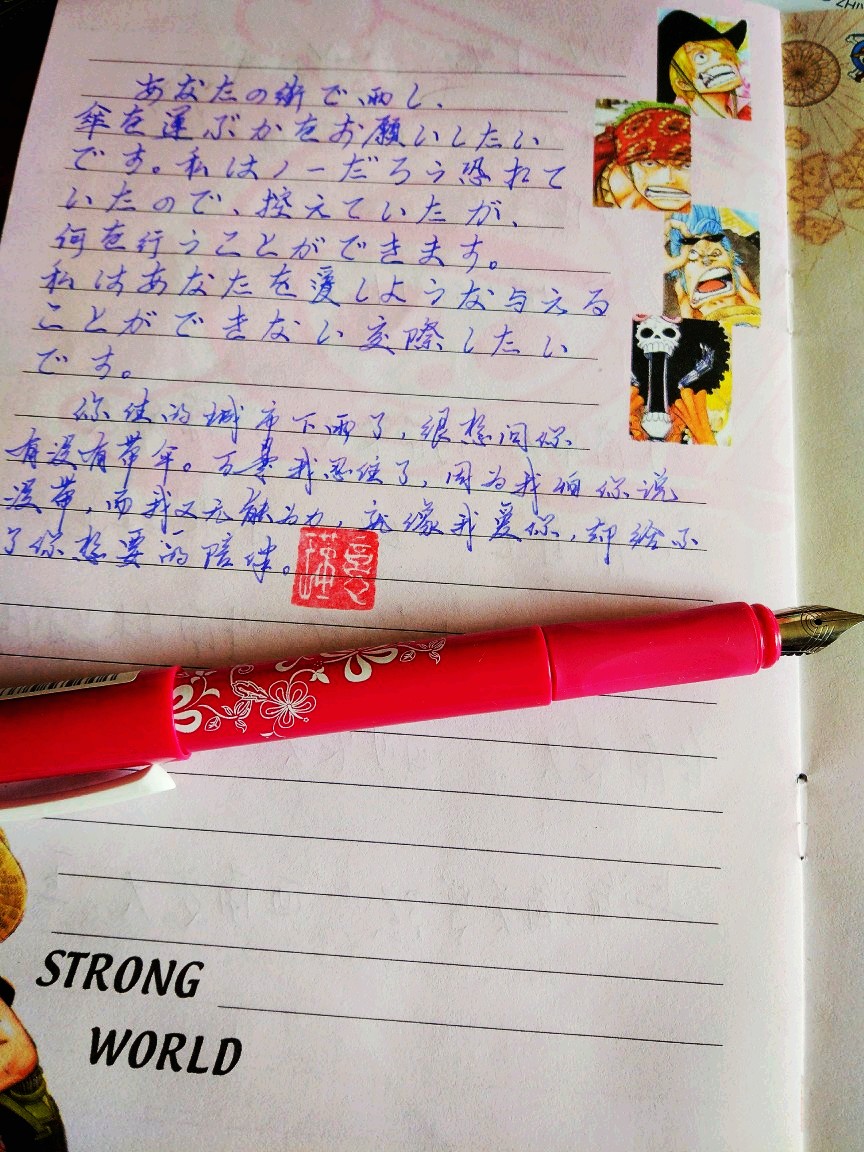 あなたの街で、雨し、
傘を運ぶかをお願いしたい
です。私はノーだろう恐れて
いたので、控えていたが、
何を行うことができます。
私はあなたを愛しような与える
ことができない交際したい
です。
你住的城市下雨了,很想问你
有没有带伞。可是我忍住了,因为我怕你说
没带,而我又无能为力,就像我爱你,却给不
了你想要的陪伴。
STRONG
WORLD